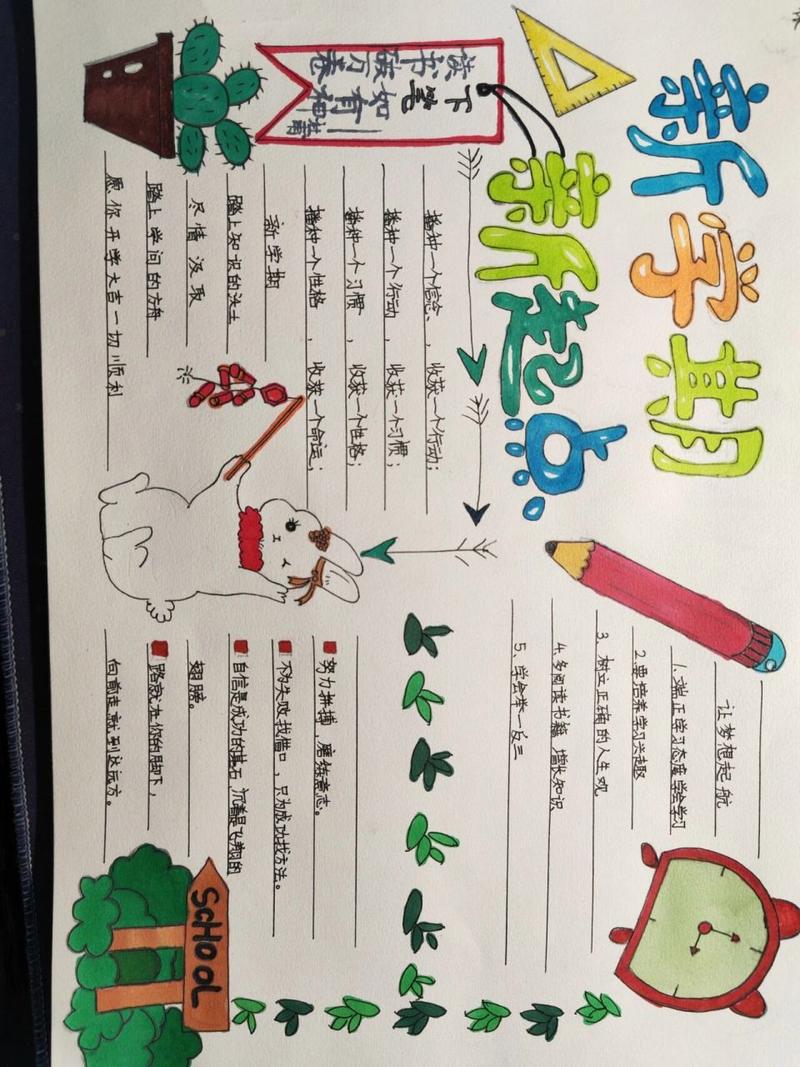 新学期
新起点
读书破万卷
下笔如有神
播种一个信念，收获一个行动；
播种一个行动，收获一个习惯；
播种一个习惯，收获一个性格；
播种一个性格，收获一个命运；
新学期
踏上知识的沃土
尽情汲取
踏上学问的方舟
愿你开学大吉一切顺利
让梦想起航
1.端正学习态度 学会学习
2.要培养学习兴趣
3.树立正确的人生观
4.多阅读书籍，增长知识
5.学会举一反三
努力拼搏，磨练意志。
不为失败找借口，只为成功找方法。
自信是成功的基石，沉着是飞翔的
翅膀。
路就在你的脚下，
向前走就到达远方。
SCHOOL